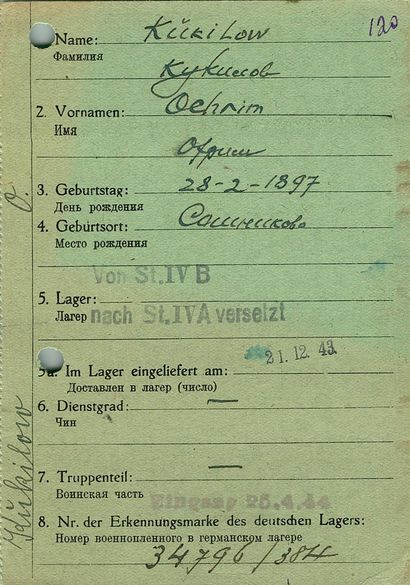 120
Name: Kŭkilow
Фамилия
Кукилов
2. Vornamen: Ochrim
Имя
Охрим
3. Geburtstag: 28-2-1897
День рождения
4. Geburtsort: Сошниково
Место рождения
Von St. IV B
5. Lager:
Лагер
nach St. IV A versetzt
5a. Im Lager eingeliefert am: 21. 12. 43.
Доставлен в лагер (число)
6. Dienstgrad: —
Чин
7. Truppenteil: —
Воинская часть
Eingang 25.4.44
8. Nr. der Erkennungsmarke des deutschen Lagers:
Номер военнопленного в германском лагере
34796/384
Kŭkilow O.